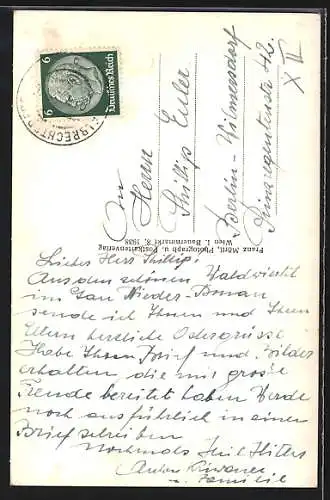 Deutsches Reich
6 6
ALBRECHTS
An
Herrn
Phillip Euler
Berlin-Wilmersdorf
Prinzregentenstr 42.
X III
Franz Mört, Photograph u. Postkartenverlag
Wien, I. Bauernmarkt 8, 1938
Lieber Herr Phillip!
Aus dem schönen Waldviertel
im Gau Nieder-Donau
sende ich Ihnen und Ihren
Eltern herzliche Ostergrüsse
Habe Ihren Brief und Bilder
erhalten die mir grosse
Freude bereitet haben Werde
noch ausführlich in einen
Brief schreiben
Nochmals Heil Hitler
Anton
u. Familie